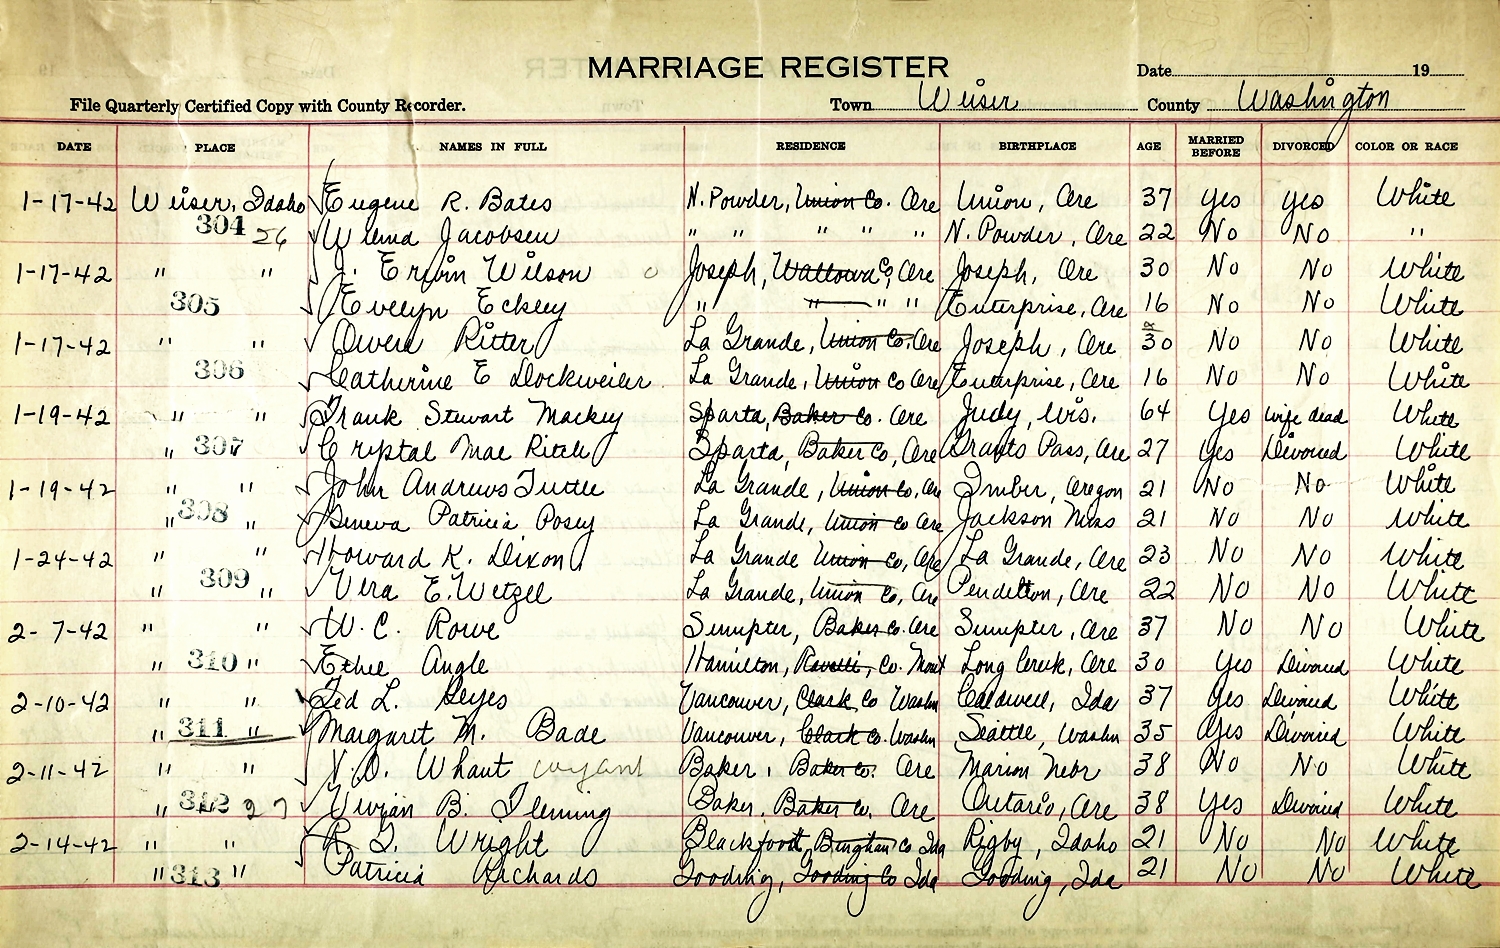 MARRIAGE REGISTER
Date 19
File Quarterly Certified Copy with County Recorder.
Town Weiser County Washington
DATE PLACE NAMES IN FULL RESIDENCE BIRTHPLACE AGE MARRIED BEFORE DIVORCED COLOR OR RACE
1-17-42 Weiser, Idaho Eugene R. Bates N. Powder, Union Co. Ore Union, Ore 37 Yes Yes White
304 26 Wilma Jacobsen " " " " " N. Powder, Ore 22 No No "
1-17-42 " " J. Erwin Wilson Joseph, Wallowa Co, Ore Joseph, Ore 30 No No White
305 Evelyn Eckley " " " " Enterprise, Ore 16 No No White
1-17-42 " " Owen Ritter La Grande, Union Co. Ore Joseph, Ore 30 No No White
306 Catherine E Dockweiler La Grande, Union Co Ore Enterprise, Ore 16 No No White
1-19-42 " " Frank Stewart Mackey Sparta, Baker Co. Ore Judy, Wis. 64 Yes wife dead White
" 307 Crystal Mae Ritch Sparta, Baker Co, Ore Grants Pass, Ore 27 Yes Divorced White
1-19-42 " " John Andrews Tuttle La Grande, Union Co, Ore Imber, Oregon 21 No No White
" 308 " Geneva Patricia Posey La Grande, Union Co Ore Jackson Miss 21 No No White
1-24-42 " " Howard K. Dixon La Grande Union Co, Ore La Grande, Ore 23 No No White
" 309 " Vera E. Wetzel La Grande, Union Co, Ore Pendelton, Ore 22 No No White
2-7-42 " " W. C. Rowe Sumpter, Baker Co. Ore Sumpter, Ore 37 No No White
" 310 " Ethel Angle Hamilton, Ravalli, Co. Mont Long Creek, Ore 30 Yes Divorced White
2-10-42 " " Ted L. Keyes Vancouver, Clark Co Washn Caldwell, Ida 37 Yes Divorced White
" 311 " Margaret M. Bade Vancouver, Clark Co. Washn Seattle, Washn 35 Yes Divorced White
2-11-42 " " V. D. Whant wyant Baker, Baker Co. Ore Marion Nebr 38 No No White
" 312 27 Vivian B. Fleming Baker, Baker Co, Ore Ontario, Ore 38 Yes Divorced White
2-14-42 " " R. G. Wright Blackfoot, Bingham Co Ida Rigby, Idaho 21 No No White
" 313 " Patricia Richards Gooding, Gooding Co Ida Gooding, Ida 21 No No White